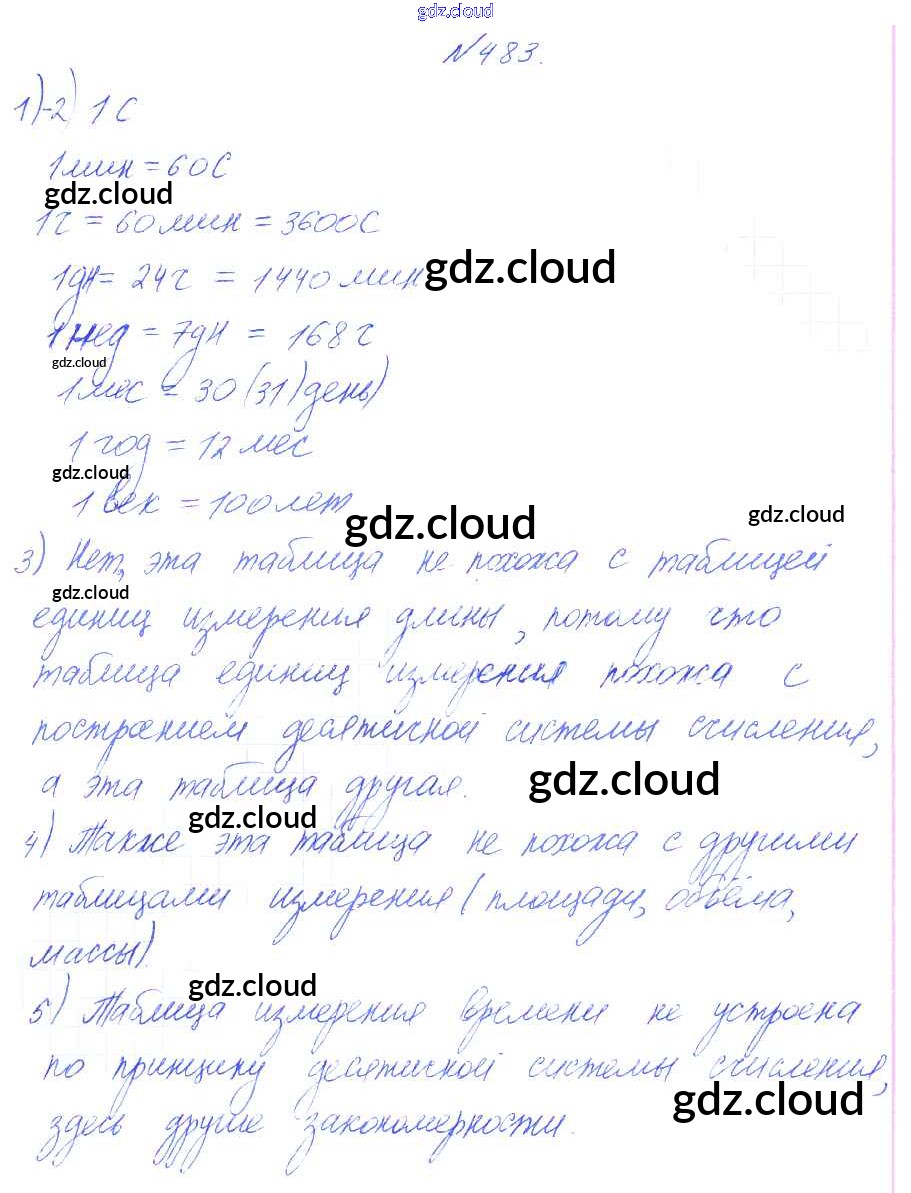 gdz.cloud
№483.
1)-2) 1 с
1мин = 60С
gdz.cloud
1ч = 60мин = 3600С
1дН= 24ч = 1440мин
gdz.cloud
1нед = 7дН = 168ч
gdz.cloud
1мес = 30(31)день)
1 год = 12мес
gdz.cloud
1 век = 100лет
gdz.cloud
gdz.cloud
3) Нет, эта таблица не похожа с таблицей
gdz.cloud
единиц измерения длины, потому что
таблица единиц измерения похожа с
построением десятичной системы счисления,
а эта таблица другая.
gdz.cloud
gdz.cloud
4) Также эта таблица не похожа с другими
таблицами измерения (площади, объёма,
массы).
gdz.cloud
5) Таблица измерения времени не устроена
по принципу десятичной системы счисления,
gdz.cloud
здесь другие закономерности.